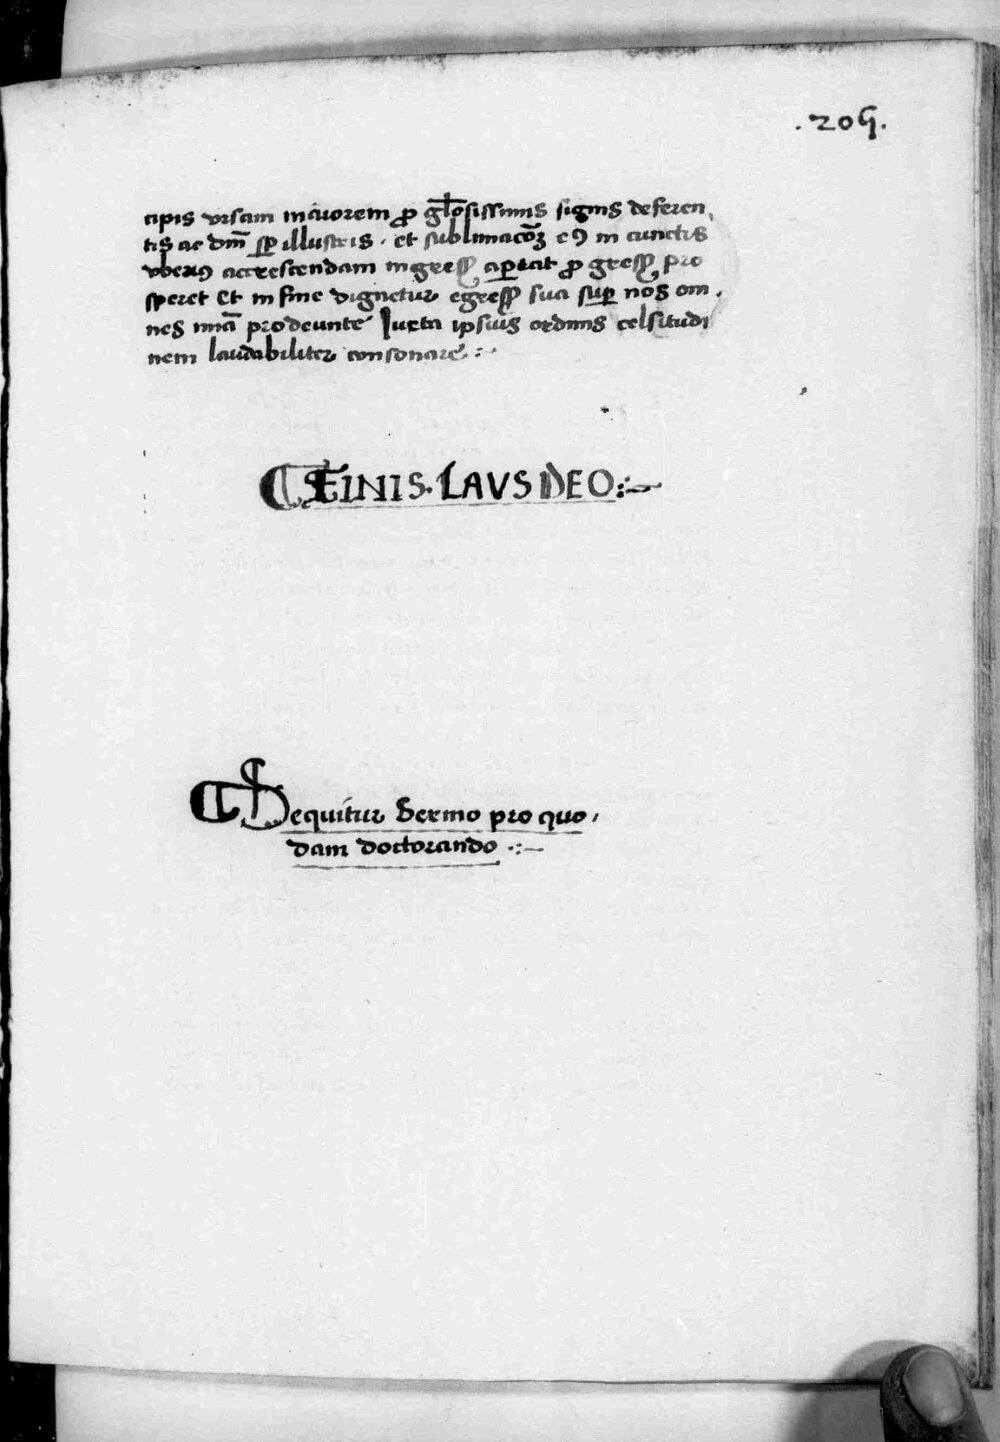 .205.
cipis vrsam maiorem p̱ gl̄osissimis signis deferen,
tis ac dm̄ sp̱ illustris. et sublimacōꝫ eꝰ in cunctis
vberiꝰ accrescendam ingressꝰ aꝑiat p̱ gressꝰ pro
speret Et in fine dignetur egressꝰ sua suꝑ nos om,
nes mīa prodeunte Iuxta ipsius ordinis celsitudi
nem laudabiliter consonare :~
¶ FINIS. LAVS DEO :~
¶ Sequitur Sermo pro quo,
dam doctorando .:~